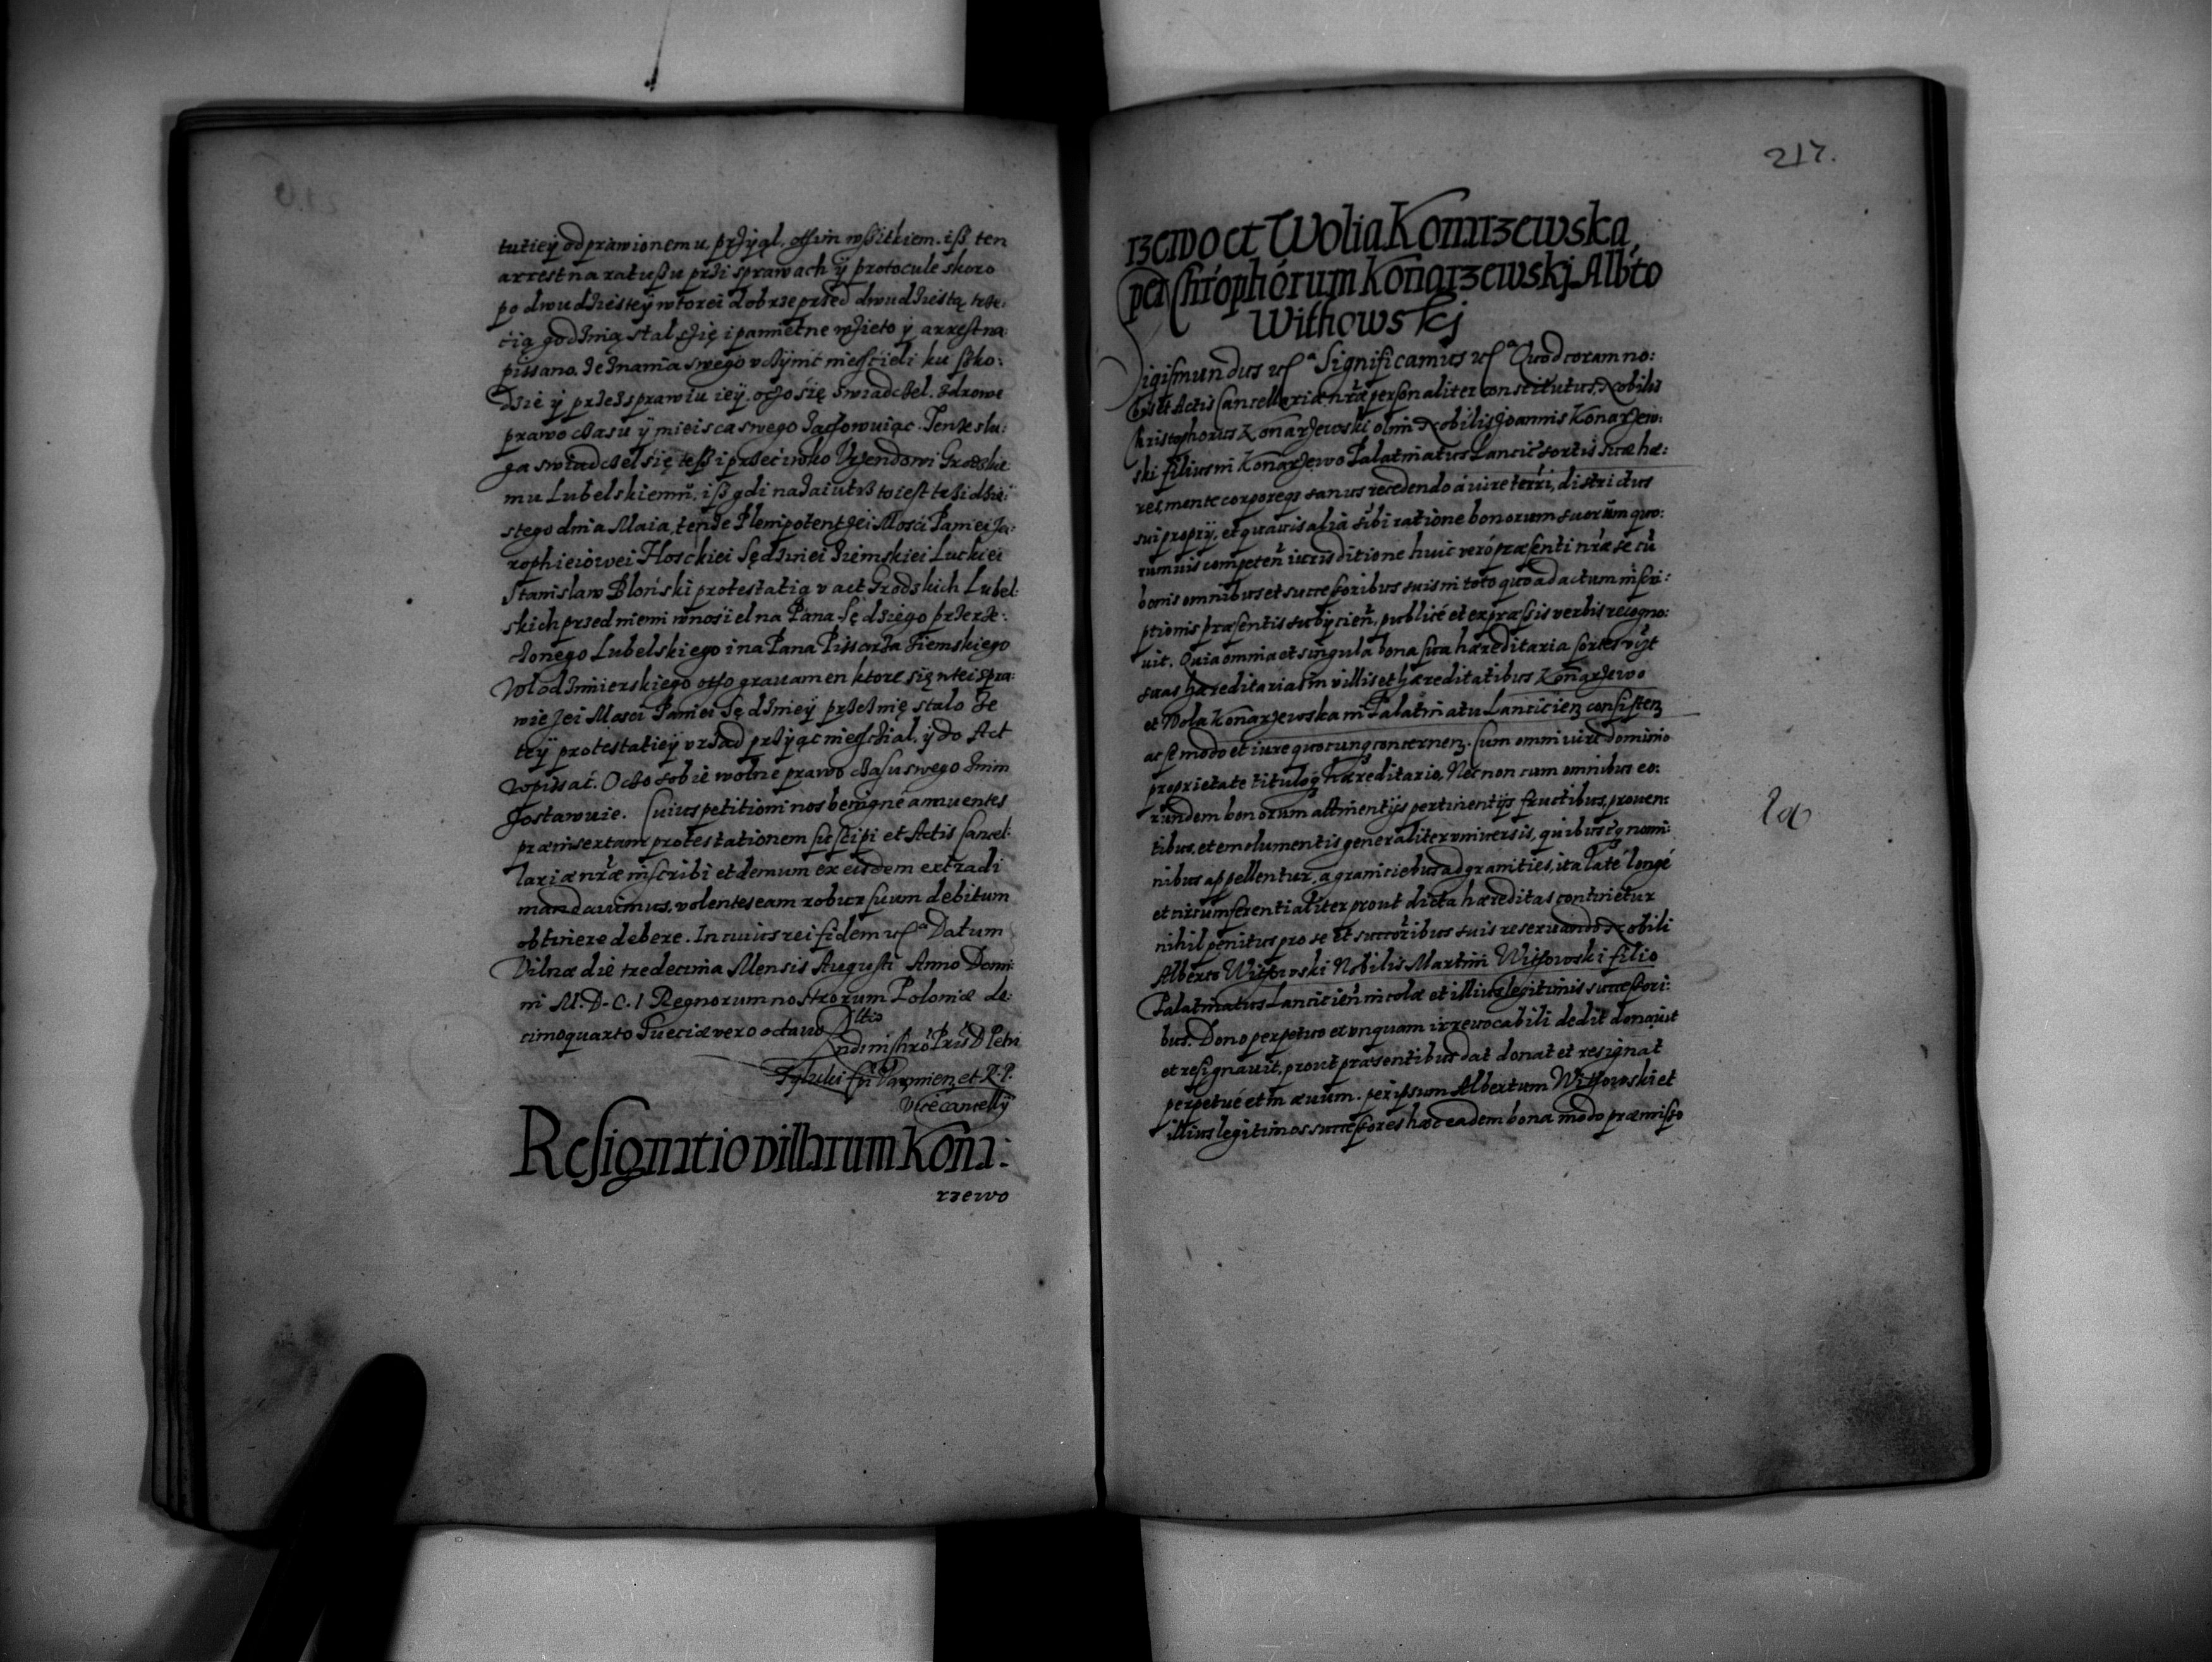 tutieÿ odprawionemu, przÿął, ossim wßitkiem. iß ten
arrest na ratußu przi sprawach ÿ protocule skoro
po dwudziesteÿ wtorei dobrze przed dwudziestą trze:
cią godzinią stal szię i pamietne wzieto ÿ arrest na
pissano. Jednania swego vczÿnić niechcieli ku ßko:
dzie ÿ przez sprawiu ieÿ. oczo się swiadczel. zdrowe
prawo czasu ÿ mieisca swego zachowuiąc. Tenze slu:
ga swiadczel się teß i przeciwko Vrzendowi Grodzkie
mu Lubelskiemŭ, iß gdi nazaiutrz to iest trzidzie:
stego dnia Maia, tenze Plenipotent Jei Mosci Paniei Ja:
rophieiowei Hosckiei Sędzinei Ziemskiei Luckiei
Stanislaw Bloński protestatią v act Grodskich Lubel:
skich przed niemi wnosiel na Pana Sędziego przerze:
czonego Lubelskiego i na Pana Pissarza Ziemskiego
Wlodzimierskiego o grauamen ktore się wtei spra:
wie Jei Mosci Paniei Sędzineÿ przeznię stalo Ze
teÿ protestatieÿ vrzad przÿąc niechcial, ÿ do Act
wpissać. Oczo sobie wolne prawo czasu swego zinim
zostawuie. Cuius petitioni nos benigné annuentes
præinsertam protestationem suscipi et Actis Cancel:
lariæ nr̃æ inscribi et demum ex eisdem extradi
mandauimus, volentes eam robur suum debitum
obtinere debere. In cuius rei fidem etc.ª Datum
Vilnæ die tredecima Mensis Augusti Anno Domi:
ni M.D.C.I Regnorum nostrorum Poloniæ de:
cimoquarto Sueciæ vero octauo
R.P.
Vicecancellÿ
Resignatio villarum Kona:
rzewo
217.
rzewo et Wolia Konarzewska,
per Chrõphorum Konarzewskj Albto
Withowskj
Sigismundus etc.ª Significamus etc.ª Quod coram no:
bis et Actis Cancellariæ nr̃æ personaliter constitutus, Nobilis
Christophorus Konarzewski olim Nobilis Joannis Konarzew:
ski filius in Konarzewo Palatinatus Lancic̃ sortis suæ hæ:
res, mente corporeqз sanus recedendo á iure terri, districtus
sui proprÿ, et quauis alia sibi ratione bonorum suorum quo:
rumuis competeñ iurisditione huic veró præsenti nr̃æ se cũ
bonis omnibus et successoribus suis in toto quo ad actum inscri:
ptionis præsentis subÿcieñ, publicé et expressis verbis recogno:
uit. Quia omnia et singula bona sua hæreditaria sortes vᵗ
suas hæreditarias in villis et hæreditatibus Konarzewo
et Wola Konarzewska in Palatinatu Lancicień consisteñ
ac se modo et iure quocunqз concerneñ. Cum omni iure dominio
proprietate tituloqз hæreditario, Nec non cum omnibus eo:
rundem bonorum attinentÿs pertinentÿs fructibus, prouen:
tibus, et emolumentis generaliter vniuersis, quibuscqз nomi:
nibus appellentur, a graniciebus ad granities, ita laté longé
et circumferentialiter prout dicta hæreditas continetur
nihil penitus pro se et succoribus suis reseruando Nobili
Alberto Withowski Nobilis Martini Withowski filio
Palatinatus Lancicieñ incolæ et illius legitimis successori:
bus. Dono perpetuo et vnquam irreuocabili dedit donauit
et resignauit, prout præsentibus dat donat et resignat
perpetué et in æuum. per ipsum Albertum Withowski et
illius legitimos successores hæc eadem bona modo præmisso